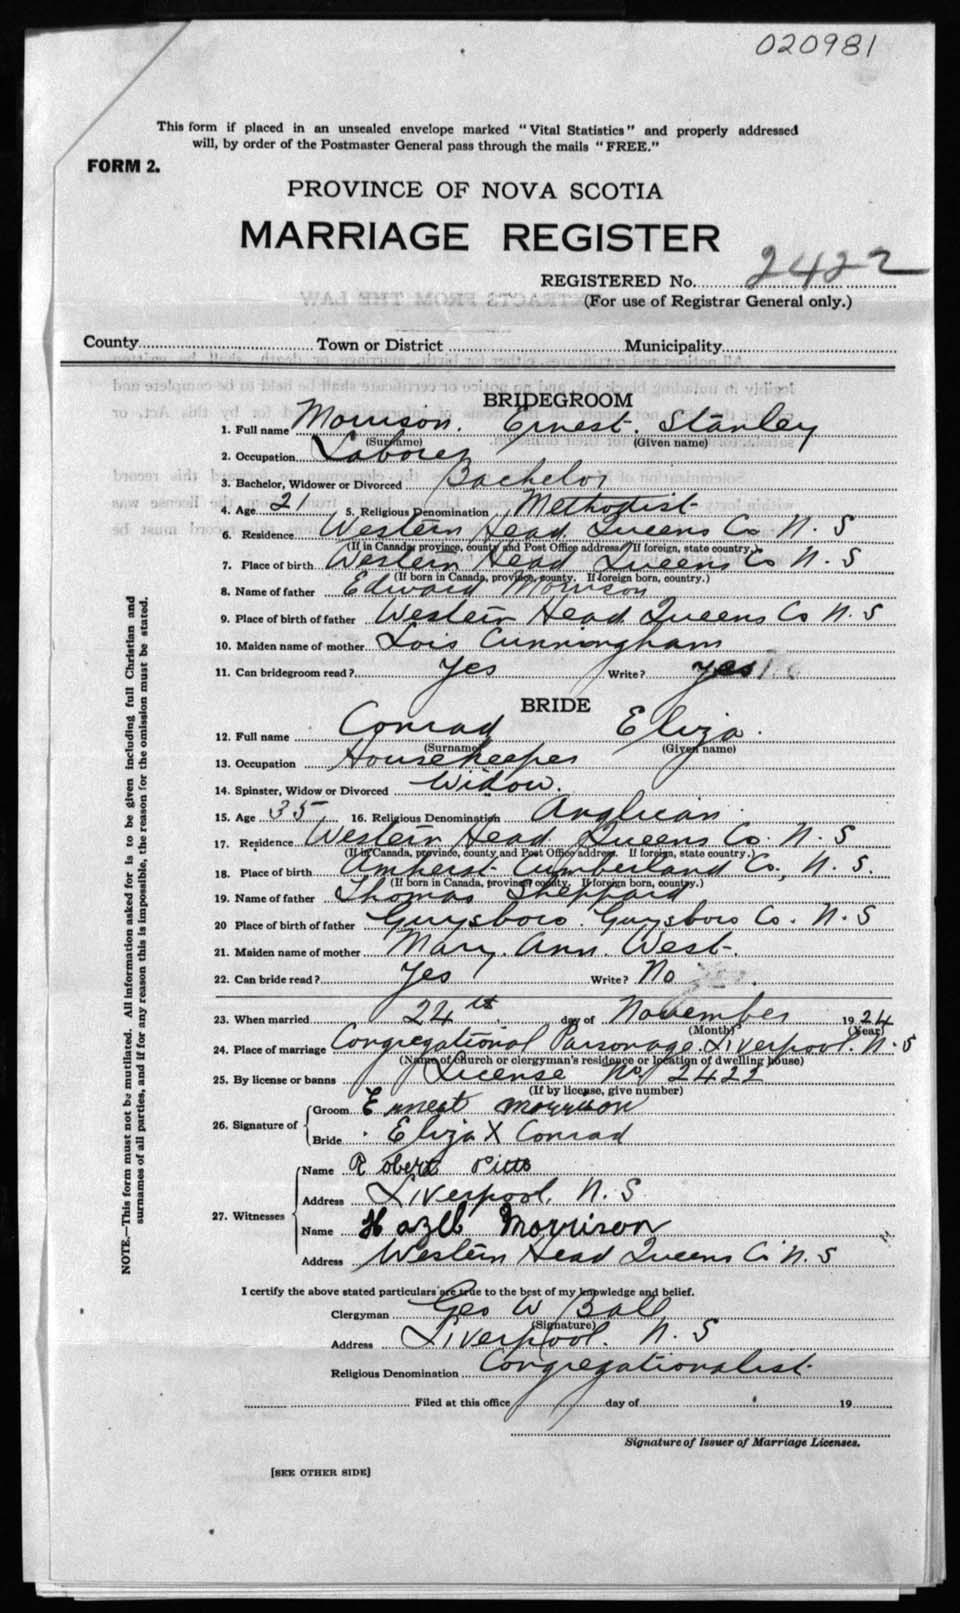 020981
This form if placed in an unsealed envelope marked "Vital Statistics" and properly addressed
will, by order of the Postmaster General pass through the mails "FREE."
FORM 2.
PROVINCE OF NOVA SCOTIA
MARRIAGE REGISTER
REGISTERED No. 2422
(For use of Registrar General only.)
County Town or District Municipality
BRIDEGROOM
1. Full name Morrison. Ernest. Stanley
(Surname) (Given name)
2. Occupation Laborer
3. Bachelor, Widower or Divorced Bachelor
4. Age 21 5. Religious Denomination Methodist
6. Residence Western Head Queens Co N. S
(If in Canada, province, county and Post Office address. If foreign, state country.)
7. Place of birth Western Head Queens Co N. S
(If born in Canada, province, county. If foreign born, country.)
8. Name of father Edward Morrison
9. Place of birth of father Western Head Queens Co N. S
10. Maiden name of mother Lois Cunningham
11. Can bridegroom read? Yes Write? yes
BRIDE
12. Full name Conrad Eliza.
(Surname) (Given name)
13. Occupation Housekeeper
14. Spinster, Widow or Divorced Widow.
15. Age 35 16. Religious Denomination Anglican
17. Residence Western Head Queens Co. N. S
(If in Canada, province, county and Post Office address. If foreign, state country.)
18. Place of birth Amherst Cumberland Co., N. S.
(If born in Canada, province, county. If foreign born, country.)
19. Name of father Thomas Sheppard
20 Place of birth of father Guysboro. Guysboro Co. N. S
21. Maiden name of mother Mary. Ann. West.
22. Can bride read? Yes Write? No
23. When married 24th day of November 1924
(Month) (Year)
24. Place of marriage Congregational Parsonage. Liverpool. N. S
(Name of church or clergyman's residence or location of dwelling house)
25. By license or banns License No. 2422
(If by license, give number)
26. Signature of Groom Ernest morrison
Bride Eliza X Conrad
27. Witnesses Name Robert Pitts
Address Liverpool, N. S.
Name Hazel Morrison
Address Western Head Queens Co N. S
I certify the above stated particulars are true to the best of my knowledge and belief.
Clergyman Geo W Ball
(Signature)
Address Liverpool. N. S
Religious Denomination Congregationalist
Filed at this office day of 19
Signature of Issuer of Marriage Licenses.
[SEE OTHER SIDE]
NOTE.—This form must not be mutilated. All information asked for is to be given including full Christian and
surnames of all parties, and if for any reason this is impossible, the reason for the omission must be stated.